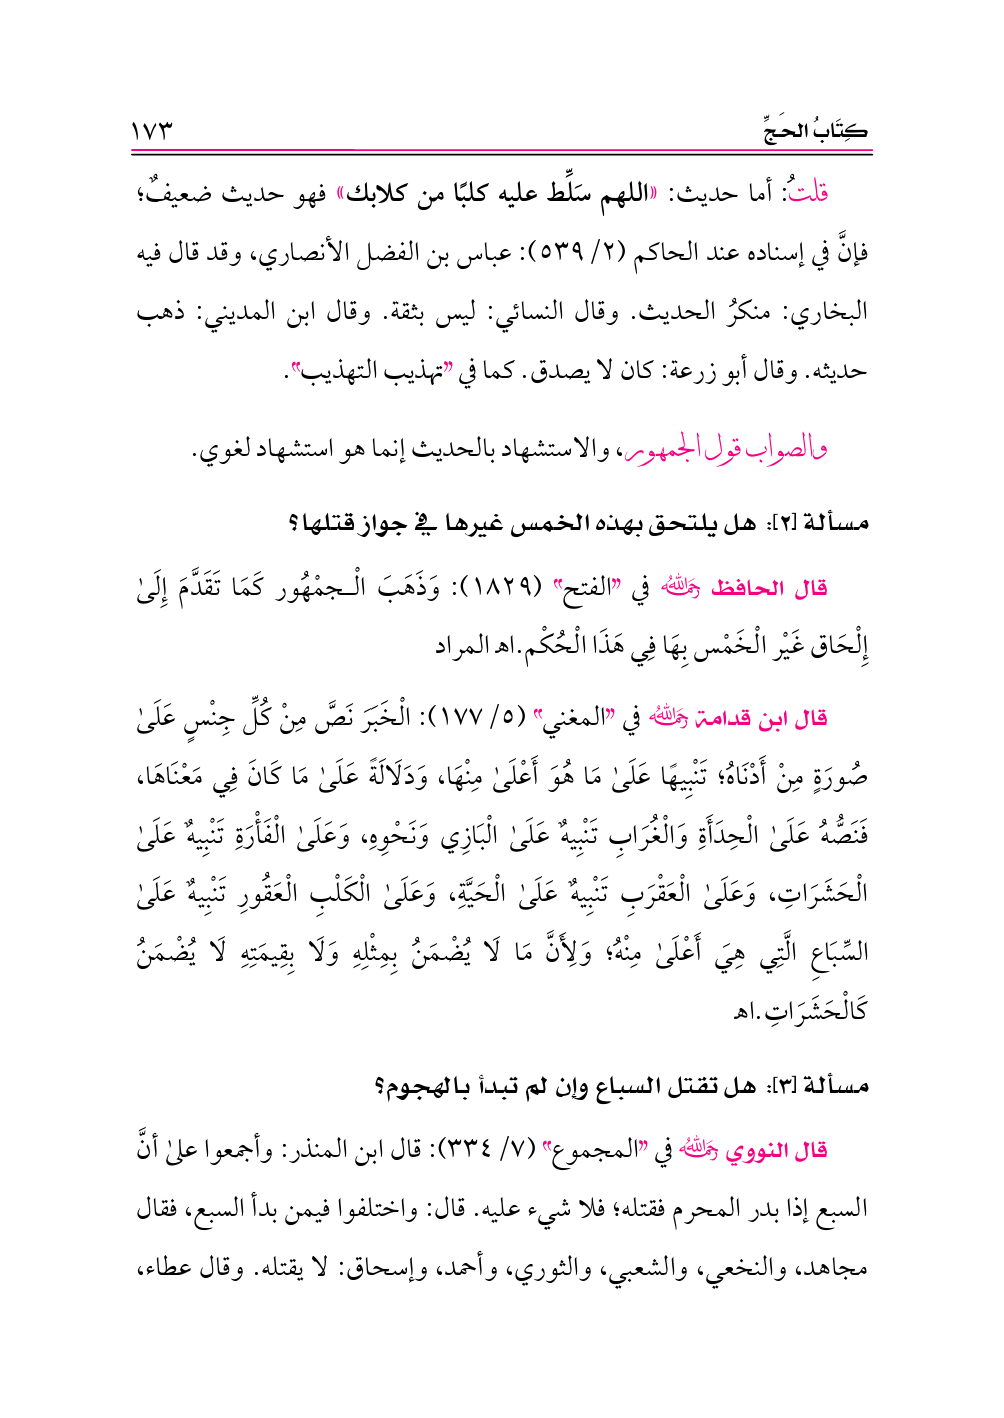 كِتَابُ الحَجِّ ١٧٣
قلتُ: أما حديث: «اللهم سَلِّط عليه كلبًا من كلابك» فهو حديث ضعيفٌ؛
فإنَّ في إسناده عند الحاكم (٢/ ٥٣٩): عباس بن الفضل الأنصاري، وقد قال فيه
البخاري: منكرُ الحديث. وقال النسائي: ليس بثقة. وقال ابن المديني: ذهب
حديثه. وقال أبو زرعة: كان لا يصدق. كما في "تهذيب التهذيب".
والصواب قول الجمهور، والاستشهاد بالحديث إنما هو استشهاد لغوي.
مسألة [٢]: هل يلتحق بهذه الخمس غيرها في جواز قتلها؟
قال الحافظ رحمه الله في "الفتح" (١٨٢٩): وَذَهَبَ الْـجمْهُور كَمَا تَقَدَّمَ إِلَىٰ
إِلْحَاق غَيْر الْخَمْس بِهَا فِي هَذَا الْحُكْم.اهـ المراد
قال ابن قدامة رحمه الله في "المغني" (٥/ ١٧٧): الْخَبَرَ نَصَّ مِنْ كُلِّ جِنْسٍ عَلَىٰ
صُورَةٍ مِنْ أَدْنَاهُ؛ تَنْبِيهًا عَلَىٰ مَا هُوَ أَعْلَىٰ مِنْهَا، وَدَلَالَةً عَلَىٰ مَا كَانَ فِي مَعْنَاهَا،
فَنَصُّهُ عَلَىٰ الْحِدَأَةِ وَالْغُرَابِ تَنْبِيهٌ عَلَىٰ الْبَازِي وَنَحْوِهِ، وَعَلَىٰ الْفَأْرَةِ تَنْبِيهٌ عَلَىٰ
الْحَشَرَاتِ، وَعَلَىٰ الْعَقْرَبِ تَنْبِيهٌ عَلَىٰ الْحَيَّةِ، وَعَلَىٰ الْكَلْبِ الْعَقُورِ تَنْبِيهٌ عَلَىٰ
السِّبَاعِ الَّتِي هِيَ أَعْلَىٰ مِنْهُ؛ وَلِأَنَّ مَا لَا يُضْمَنُ بِمِثْلِهِ وَلَا بِقِيمَتِهِ لَا يُضْمَنُ
كَالْحَشَرَاتِ.اهـ
مسألة [٣]: هل تقتل السباع وإن لم تبدأ بالهجوم؟
قال النووي رحمه الله في "المجموع" (٧/ ٣٣٤): قال ابن المنذر: وأجمعوا علىٰ أنَّ
السبع إذا بدر المحرم فقتله؛ فلا شيء عليه. قال: واختلفوا فيمن بدأ السبع، فقال
مجاهد، والنخعي، والشعبي، والثوري، وأحمد، وإسحاق: لا يقتله. وقال عطاء،